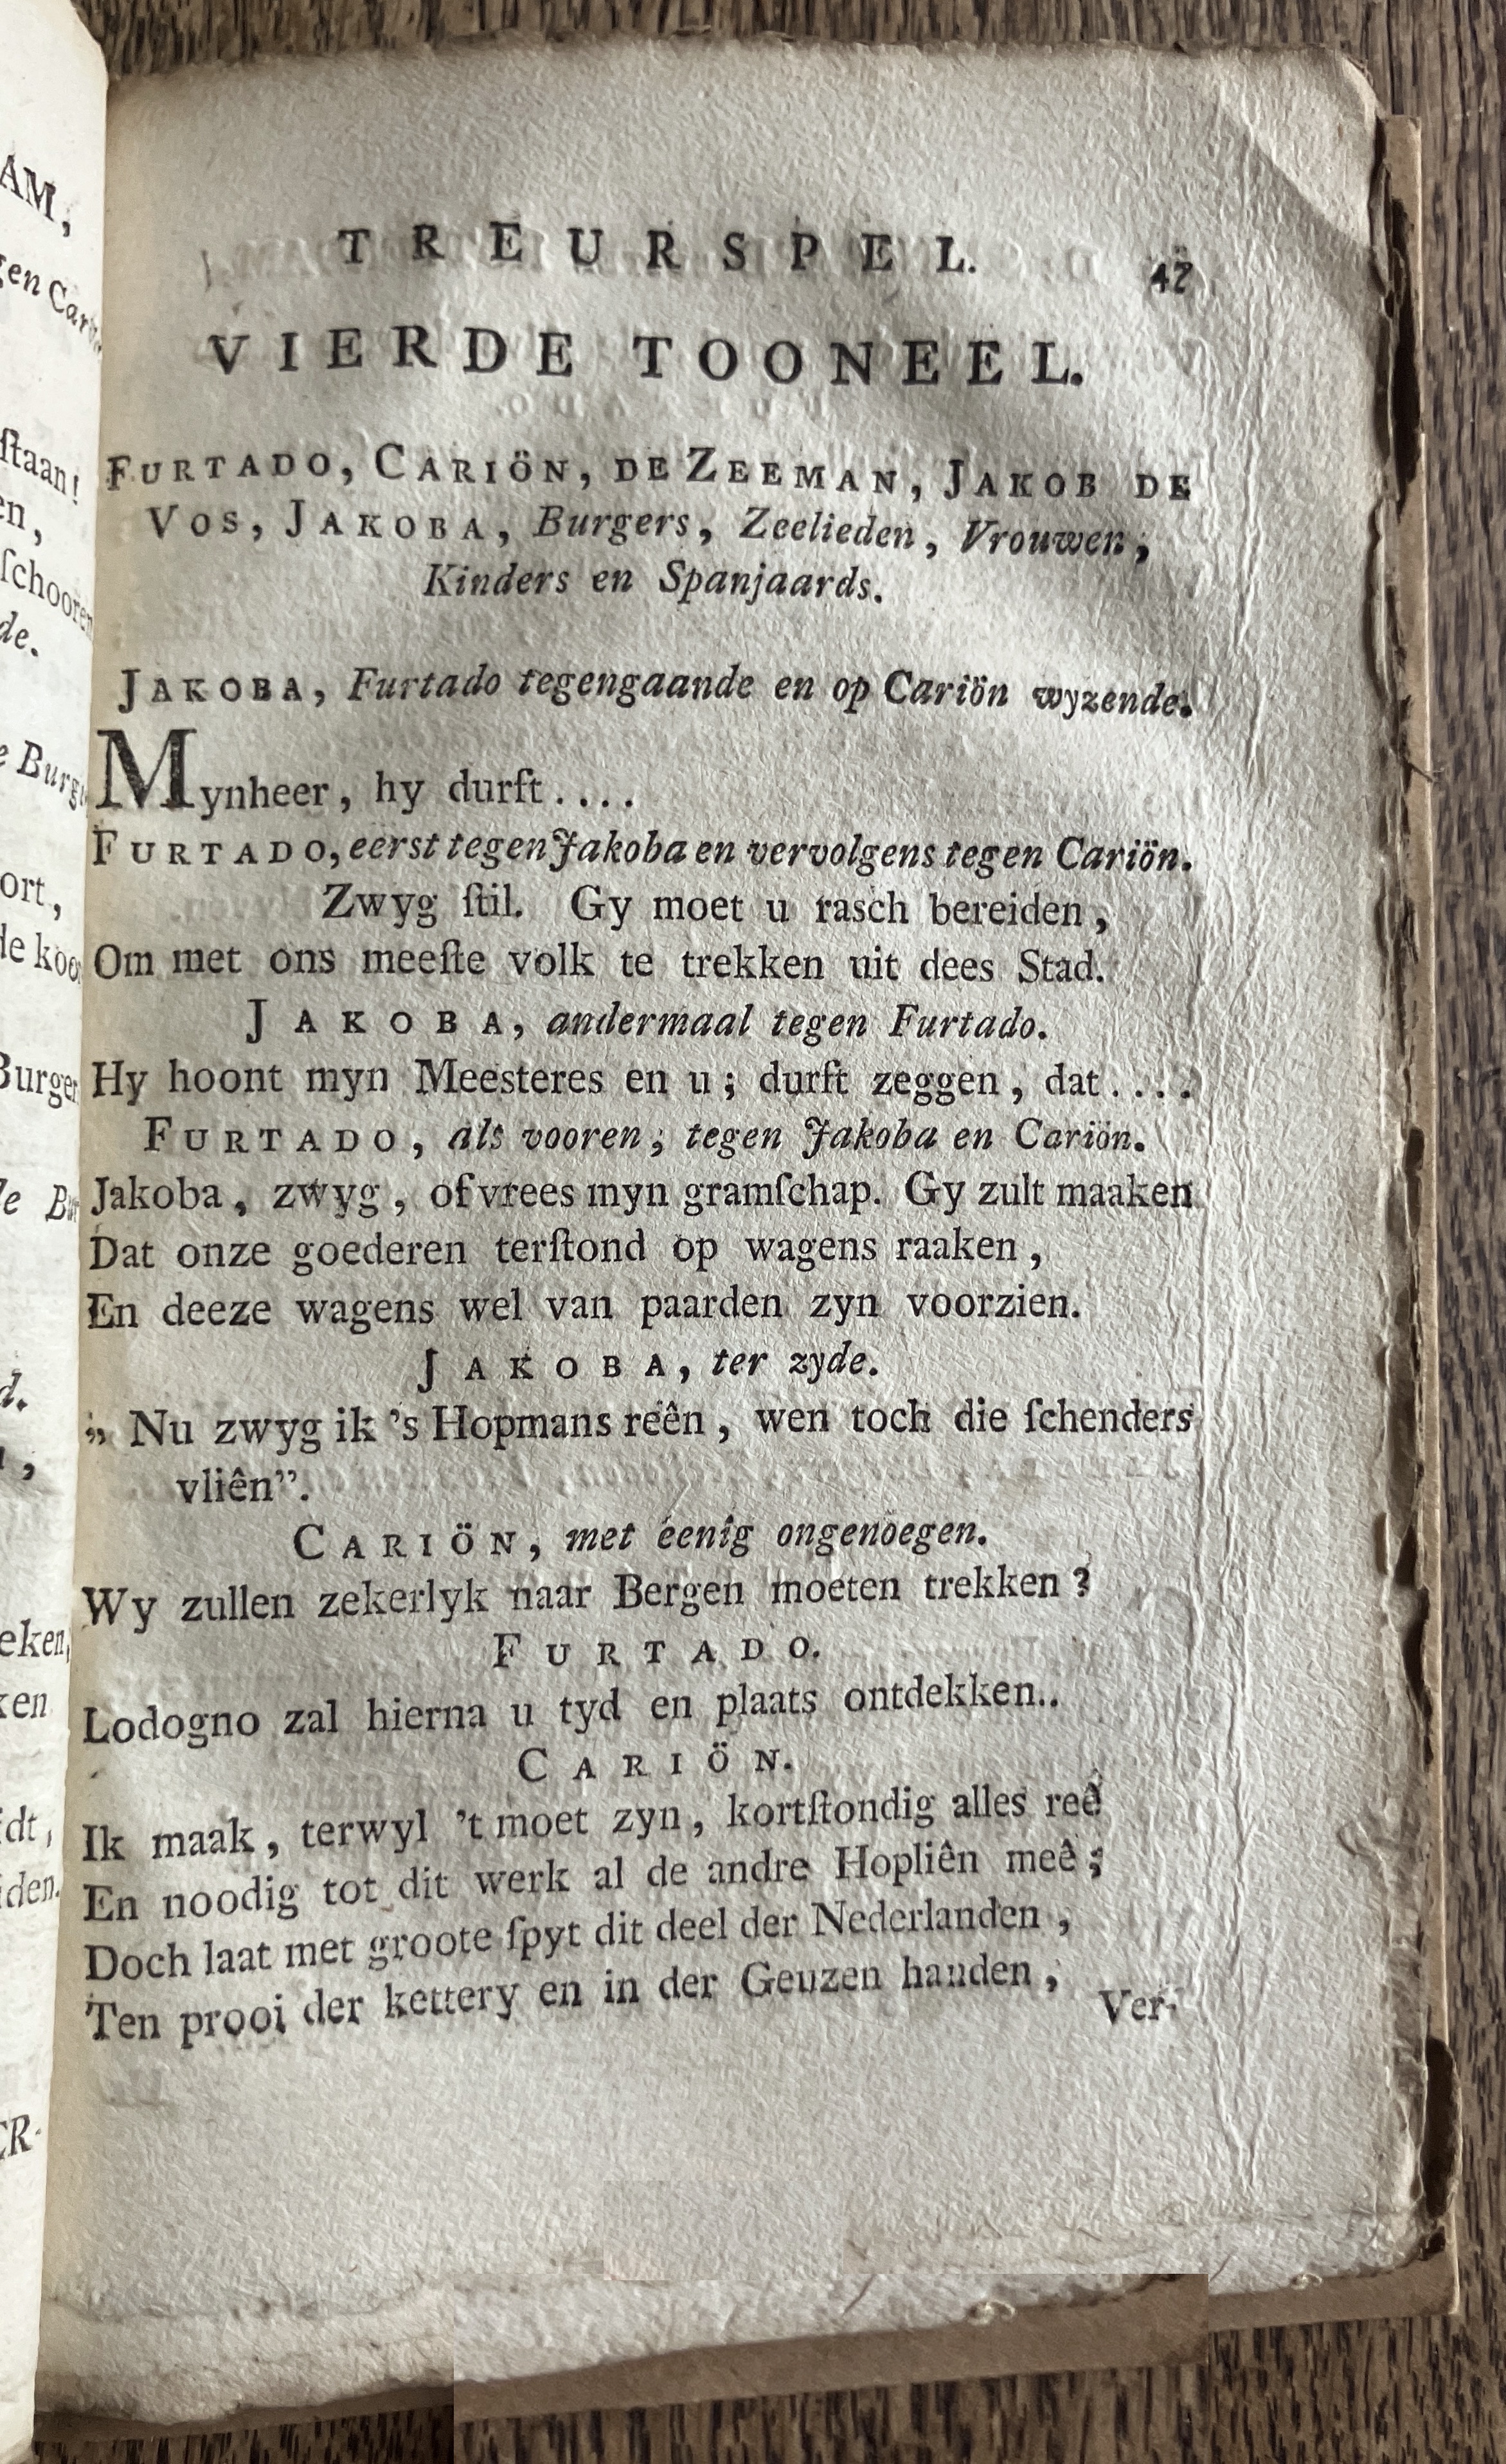 AM,
gen Cari
ſtaan!
en,
ſchooren
de.
e Burg
ort,
de koo
Burger
de Bu
d.
,
eken,
ken
idt,
iden.
ER-
TREURSPEL. 47
VIERDE TOONEEL.
FURTADO, CARIÖN, DE ZEEMAN, JAKOB DE
VOS, JAKOBA, Burgers, Zeelieden, Vrouwen,
Kinders en Spanjaards.
JAKOBA, Furtado tegengaande en op Cariön wyzende.
Mynheer, hy durft....
FURTADO, eerst tegen Jakoba en vervolgens tegen Cariön.
Zwyg ſtil. Gy moet u rasch bereiden,
Om met ons meeſte volk te trekken uit dees Stad.
JAKOBA, andermaal tegen Furtado.
Hy hoont myn Meesteres en u; durft zeggen, dat....
FURTADO, als vooren; tegen Jakoba en Cariön.
Jakoba, zwyg, of vrees myn gramſchap. Gy zult maaken
Dat onze goederen terſtond op wagens raaken,
En deeze wagens wel van paarden zyn voorzien.
JAKOBA, ter zyde.
„ Nu zwyg ik 's Hopmans reên, wen toch die ſchenders
vliên”.
CARIÖN, met eenig ongenoegen.
Wy zullen zekerlyk naar Bergen moeten trekken?
FURTADO.
Lodogno zal hierna u tyd en plaats ontdekken..
CARIÖN.
Ik maak, terwyl 't moet zyn, kortſtondig alles reê
En noodig tot dit werk al de andre Hopliên meê;
Doch laat met groote ſpyt dit deel der Nederlanden,
Ten prooi der kettery en in der Geuzen handen,
Ver-